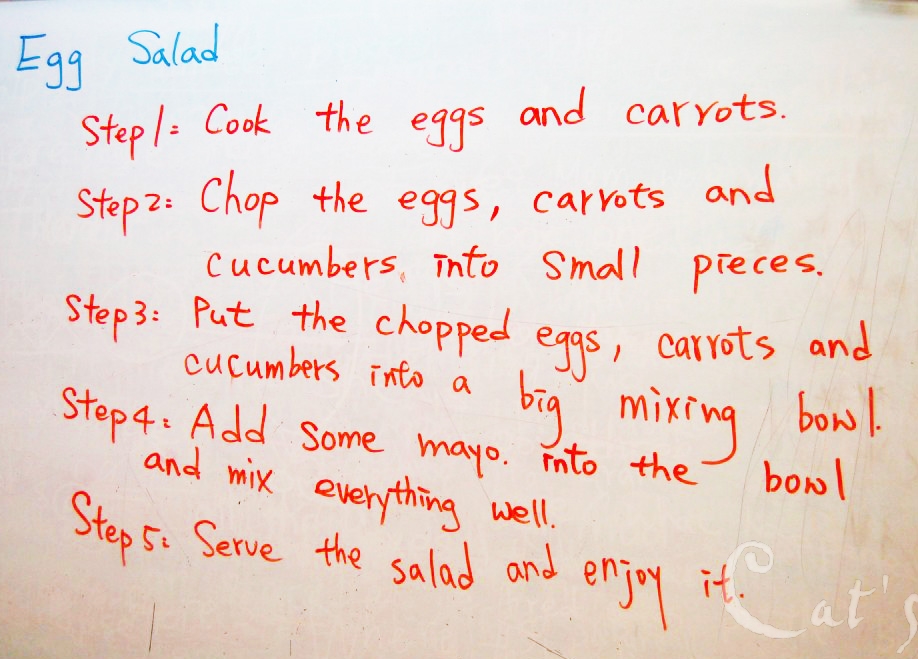 Egg Salad
Step1: Cook the eggs and carrots.
Step2: Chop the eggs, carrots and
cucumbers, into small pieces.
Step3: Put the chopped eggs, carrots and
cucumbers into a big mixing bowl.
Step4: Add some mayo. into the bowl
and mix everything well.
Step5: Serve the salad and enjoy it.
Cat's